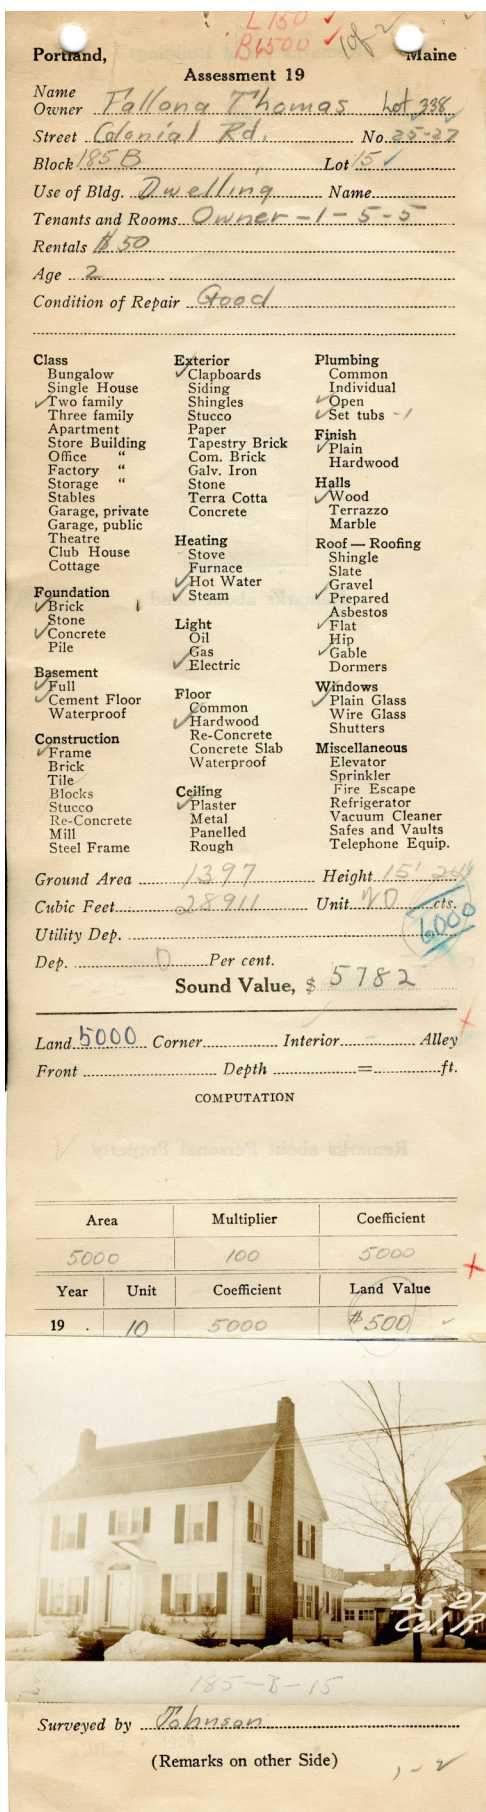 L 150 ✓
B 6500 ✓ 1 of 2
Portland, Maine
Assessment 19
Name
Owner Fallona Thomas Lot 338
Street Colonial Rd. No. 25-27
Block 185 B Lot 15 ✓
Use of Bldg. Dwelling Name
Tenants and Rooms Owner - 1 - 5 - 5
Rentals $ 50
Age 2
Condition of Repair Good
Class
Bungalow
Single House
✓ Two family
Three family
Apartment
Store Building
Office "
Factory "
Storage "
Stables
Garage, private
Garage, public
Theatre
Club House
Cottage
Foundation
✓ Brick
Stone
✓ Concrete
Pile
Basement
✓ Full
✓ Cement Floor
Waterproof
Construction
✓ Frame
Brick
Tile
Blocks
Stucco
Re-Concrete
Mill
Steel Frame
Exterior
✓ Clapboards
Siding
Shingles
Stucco
Paper
Tapestry Brick
Com. Brick
Galv. Iron
Stone
Terra Cotta
Concrete
Heating
Stove
Furnace
✓ Hot Water
✓ Steam
Light
Oil
Gas
✓ Electric
Floor
Common
✓ Hardwood
Re-Concrete
Concrete Slab
Waterproof
Ceiling
✓ Plaster
Metal
Panelled
Rough
Plumbing
Common
Individual
✓ Open
✓ Set tubs - 1
Finish
✓ Plain
Hardwood
Halls
✓ Wood
Terrazzo
Marble
Roof — Roofing
Shingle
Slate
✓ Gravel
✓ Prepared
Asbestos
✓ Flat
Hip
✓ Gable
Dormers
Windows
✓ Plain Glass
Wire Glass
Shutters
Miscellaneous
Elevator
Sprinkler
Fire Escape
Refrigerator
Vacuum Cleaner
Safes and Vaults
Telephone Equip.
Ground Area 1397 Height 15'
Cubic Feet 28911 Unit 20 cts.
6000
Utility Dep.
Dep. 0 Per cent.
Sound Value, $ 5782
Land 5000 Corner Interior Alley
Front Depth = ft.
COMPUTATION
Remarks about Personal Property
Area Multiplier Coefficient
5000 100 5000
Year Unit Coefficient Land Value
19 . 10 5000 $500
25-27
Col. R.
185-B-15
Surveyed by Johnson
(Remarks on other Side)